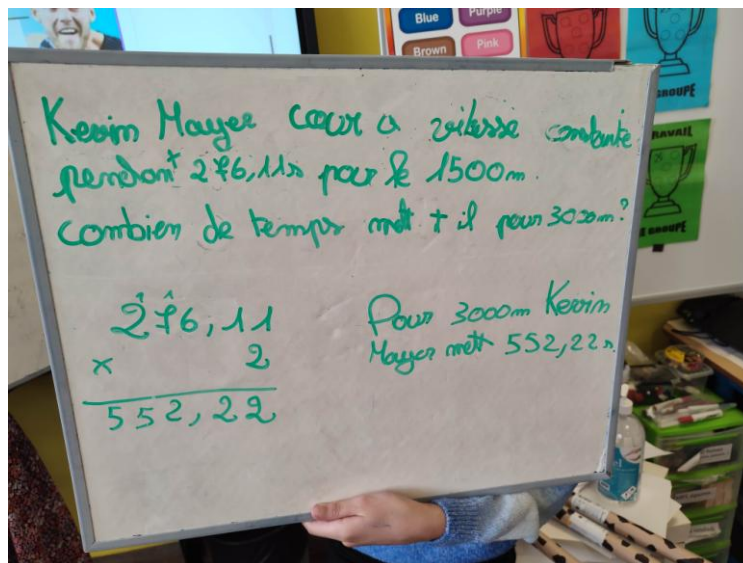 Blue
Purple
Brown
Pink
GROUPE
TRAVAIL
GROUPE
Kevin Mayer cour a vitesse constante
pendant 276,11s pour le 1500m.
combien de temps mett t il pour 3000m?
276,11
x 2
552,22
Pour 3000m Kevin
Mayer mett 552,22s.